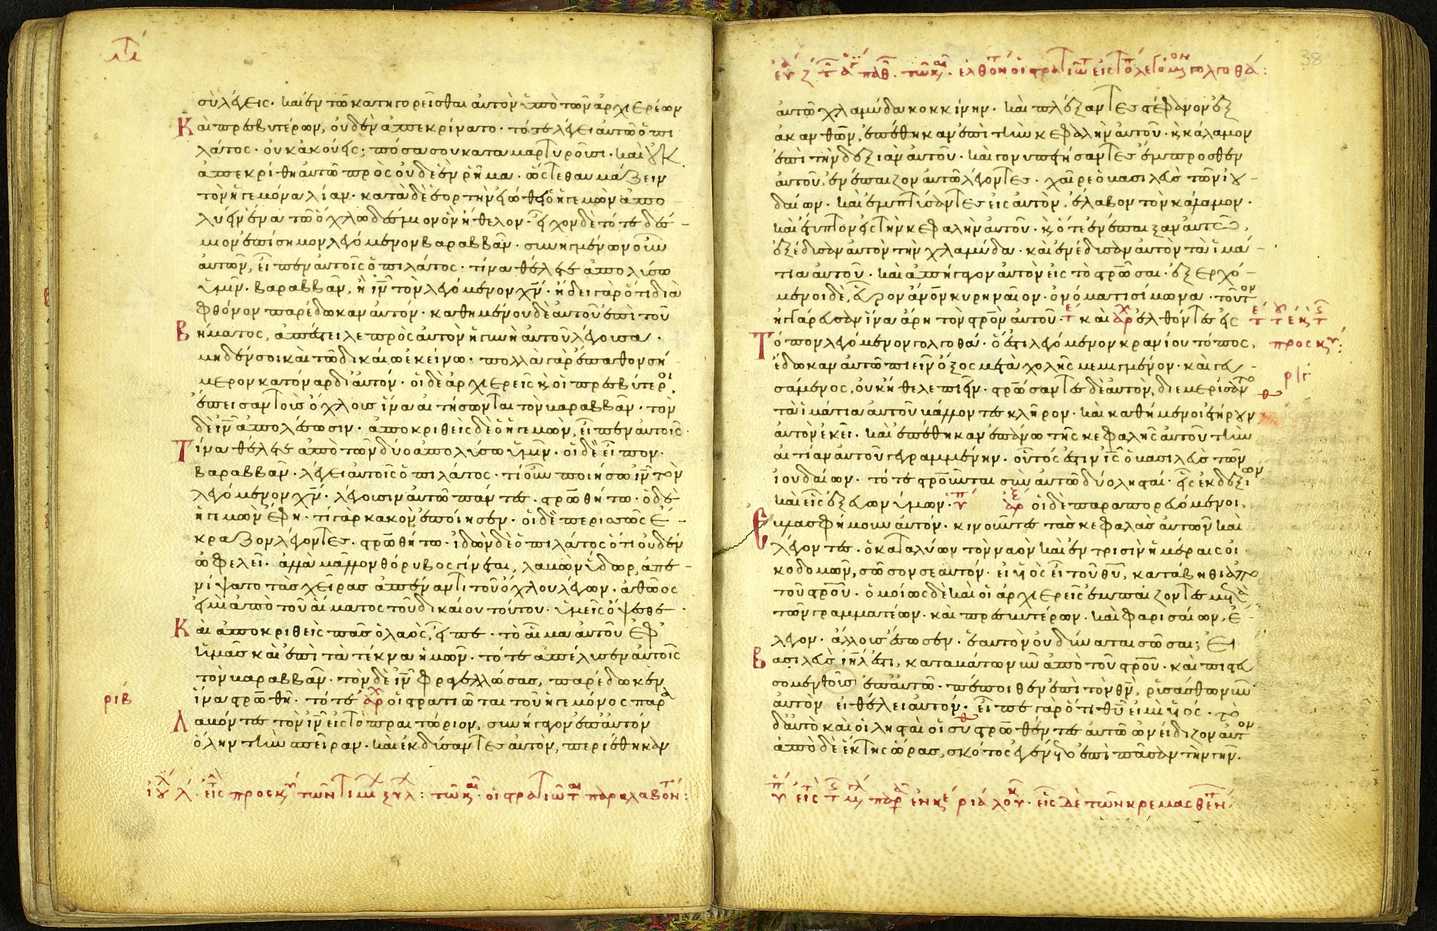 σὺ λέγεις· καὶ ἐν τῶ κατηγορεῖσθαι αὐτὸν ὑπὸ τῶν ἀρχιερέων
Καὶ πρεσβυτέρων, οὐδὲν ἀπεκρίνατο· τότε λέγει αὐτῶ ὁ πι
λάτος· οὐκ ἀκούεις; πόσα σου καταμαρτυροῦσι· καὶ οὐκ
ἀπεκρίθη αὐτῶ πρὸς οὐδὲ ἓν ῥῆμα· ὥστε θαυμάζειν
τὸν ἡγεμόνα λίαν· κατὰ δὲ ἑορτὴν εἰώθει ὁ ἡγεμὼν ἀπο
λύειν ἕνα τῶ ὄχλω δέσμιον ὃν ἤθελον· εἶχον δὲ τότε δέσ
μιον ἐπίσημον λεγόμενον βαραββᾶν· συνηγμένων οὖν
αὐτῶν, εἶπεν αὐτοῖς ὁ πιλάτος· τίνα θέλετε ἀπολύσω
ὑμῖν· βαραββᾶν, ἢ ἰν τὸν λεγόμενον χν· ἤδει γὰρ ὅτι διὰ
φθόνον παρέδωκαν αὐτόν· καθημένου δὲ αὐτοῦ ἐπὶ τοῦ
Βήματος, ἀπέστειλε πρὸς αὐτὸν ἡ γυνὴ αὐτοῦ λέγουσα·
μηδέν σοι καὶ τῶ δικαίω ἐκείνω· πολλὰ γὰρ ἔπαθον σή
μερον κατ' ὄναρ δι' αὐτόν· οἱ δὲ ἀρχιερεῖς καὶ οἱ πρεσβύτεροι
ἔπεισαν τοὺς ὄχλους ἵνα αἰτήσωνται τὸν βαραββᾶν· τὸν
δὲ ἰν ἀπολέσωσιν· ἀποκριθεὶς δὲ ὁ ἡγεμὼν, εἶπεν αὐτοῖς·
Τίνα θέλετε ἀπὸ τῶν δύο ἀπολύσω ὑμῖν· οἱ δὲ εἶπον·
βαραββᾶν· λέγει αὐτοῖς ὁ πιλάτος· τί οὖν ποιήσω ἰν τὸν
λεγόμενον χν· λέγουσιν αὐτῶ πάντες· σταυρωθήτω· ὁ δὲ
ἡγεμὼν ἔφη· τί γὰρ κακὸν ἐποίησεν· οἱ δὲ περισσῶς ἔ
κραζον λέγοντες· σταυρωθήτω· ἰδὼν δὲ ὁ πιλάτος ὅτι οὐδὲν
ὠφελεῖ· ἀλλὰ μᾶλλον θόρυβος γίνεται, λαβὼν ὕδωρ, ἀπε
νίψατο τὰς χεῖρας ἀπέναντι τοῦ ὄχλου λέγων· ἀθῶος
εἰμὶ ἀπὸ τοῦ αἵματος τοῦ δικαίου τούτου· ὑμεῖς ὄψεσθε·
Καὶ ἀποκριθεὶς πᾶς ὁ λαὸς, εἶπε· τὸ αἷμα αὐτοῦ ἐφ'
ἡμᾶς καὶ ἐπὶ τὰ τέκνα ἡμῶν· τότε ἀπέλυσεν αὐτοῖς
τὸν βαραββᾶν· τὸν δὲ ἰν φραγελλώσας, παρέδωκεν
ριβ ἵνα σταυρωθῆ· τότε οἱ στρατιῶται τοῦ ἡγεμόνος παρα
Λαβόντες τὸν ἰν εἰς τὸ πραιτώριον, συνήγαγον ἐπ' αὐτὸν
ὅλην τὴν σπεῖραν· καὶ ἐκδύσαντες αὐτὸν, περιέθηκαν
αὐτῶ χλαμύδα κοκκίνην· καὶ πλέξαντες στέφανον ἐξ
ἀκανθῶν, ἐπέθηκαν ἐπὶ τὴν κεφαλὴν αὐτοῦ· καὶ κάλαμον
ἐπὶ τὴν δεξιὰν αὐτοῦ· καὶ γονυπετήσαντες ἔμπροσθεν
αὐτοῦ, ἐνέπαιζον αὐτῶ λέγοντες· χαῖρε ὁ βασιλεὺς τῶν ἰου
δαίων· καὶ ἐμπτύσαντες εἰς αὐτὸν, ἔλαβον τὸν κάλαμον·
καὶ ἔτυπτον εἰς τὴν κεφαλὴν αὐτοῦ· καὶ ὅτε ἐνέπαιξαν αὐτῶ,
ἐξέδυσαν αὐτὸν τὴν χλαμύδα· καὶ ἐνέδυσαν αὐτὸν τὰ ἱμά
τια αὐτοῦ· καὶ ἀπήγαγον αὐτὸν εἰς τὸ σταυρῶσαι· ἐξερχό
μενοι δὲ, εὗρον ἄνον κυρηναῖον· ὀνόματι σίμωνα· τοῦτον
ἠγγάρευσαν ἵνα ἄρη τὸν σταυρὸν αὐτοῦ· καὶ ἐλθόντες εἰς
Τόπον λεγόμενον γολγοθᾶ· ὅ ἐστι λεγόμενον κρανίου τόπος,
ἔδωκαν αὐτῶ πιεῖν ὄξος μετὰ χολῆς μεμιγμένον· καὶ γευ
σάμενος, οὐκ ἤθελε πιεῖν· σταυρώσαντες δὲ αὐτὸν, διεμερίσαντο
τὰ ἱμάτια αὐτοῦ βάλλοντες κλῆρον· καὶ καθήμενοι ἐτήρουν
αὐτὸν ἐκεῖ· καὶ ἐπέθηκαν ἐπάνω τῆς κεφαλῆς αὐτοῦ τὴν
αἰτίαν αὐτοῦ γεγραμμένην· οὗτός ἐστιν ις ὁ βασιλεὺς τῶν
ἰουδαίων· τότε σταυροῦνται σὺν αὐτῶ δύο λησταί· εἷς ἐκ δεξιῶν
καὶ εἷς ἐξ εὐωνύμων· οἱ δὲ παραπορευόμενοι,
Ἐβλασφήμουν αὐτόν· κινοῦντες τὰς κεφαλὰς αὐτῶν καὶ
λέγοντες· ὁ καταλύων τὸν ναὸν καὶ ἐν τρισὶν ἡμέραις οἰ
κοδομῶν, σῶσον σεαυτόν· εἰ υἱὸς εἶ τοῦ θυ, κατάβηθι ἀπὸ
τοῦ σταυροῦ· ὁμοίως δὲ καὶ οἱ ἀρχιερεῖς ἐμπαίζοντες μετὰ
τῶν γραμματέων· καὶ πρεσβυτέρων· καὶ φαρισαίων, ἔ
λεγον· ἄλλους ἔσωσεν· ἑαυτὸν οὐ δύναται σῶσαι; Εἰ
Βασιλεὺς ιηλ ἐστι, καταβάτω νῦν ἀπὸ τοῦ σταυροῦ· καὶ πιστεύ
σομεν ἐπ' αὐτῶ· πέποιθεν ἐπὶ τὸν θν, ῥυσάσθω νῦν
αὐτὸν εἰ θέλει αὐτόν· εἶπε γὰρ ὅτι θυ εἰμὶ υἱός· τὸ
δ' αὐτὸ καὶ οἱ λησταὶ οἱ συσταυρωθέντες αὐτῶ ὠνείδιζον αὐτόν
ἀπὸ δὲ ἕκτης ὥρας, σκότος ἐγένετο ἐπὶ πᾶσαν τὴν γῆν.